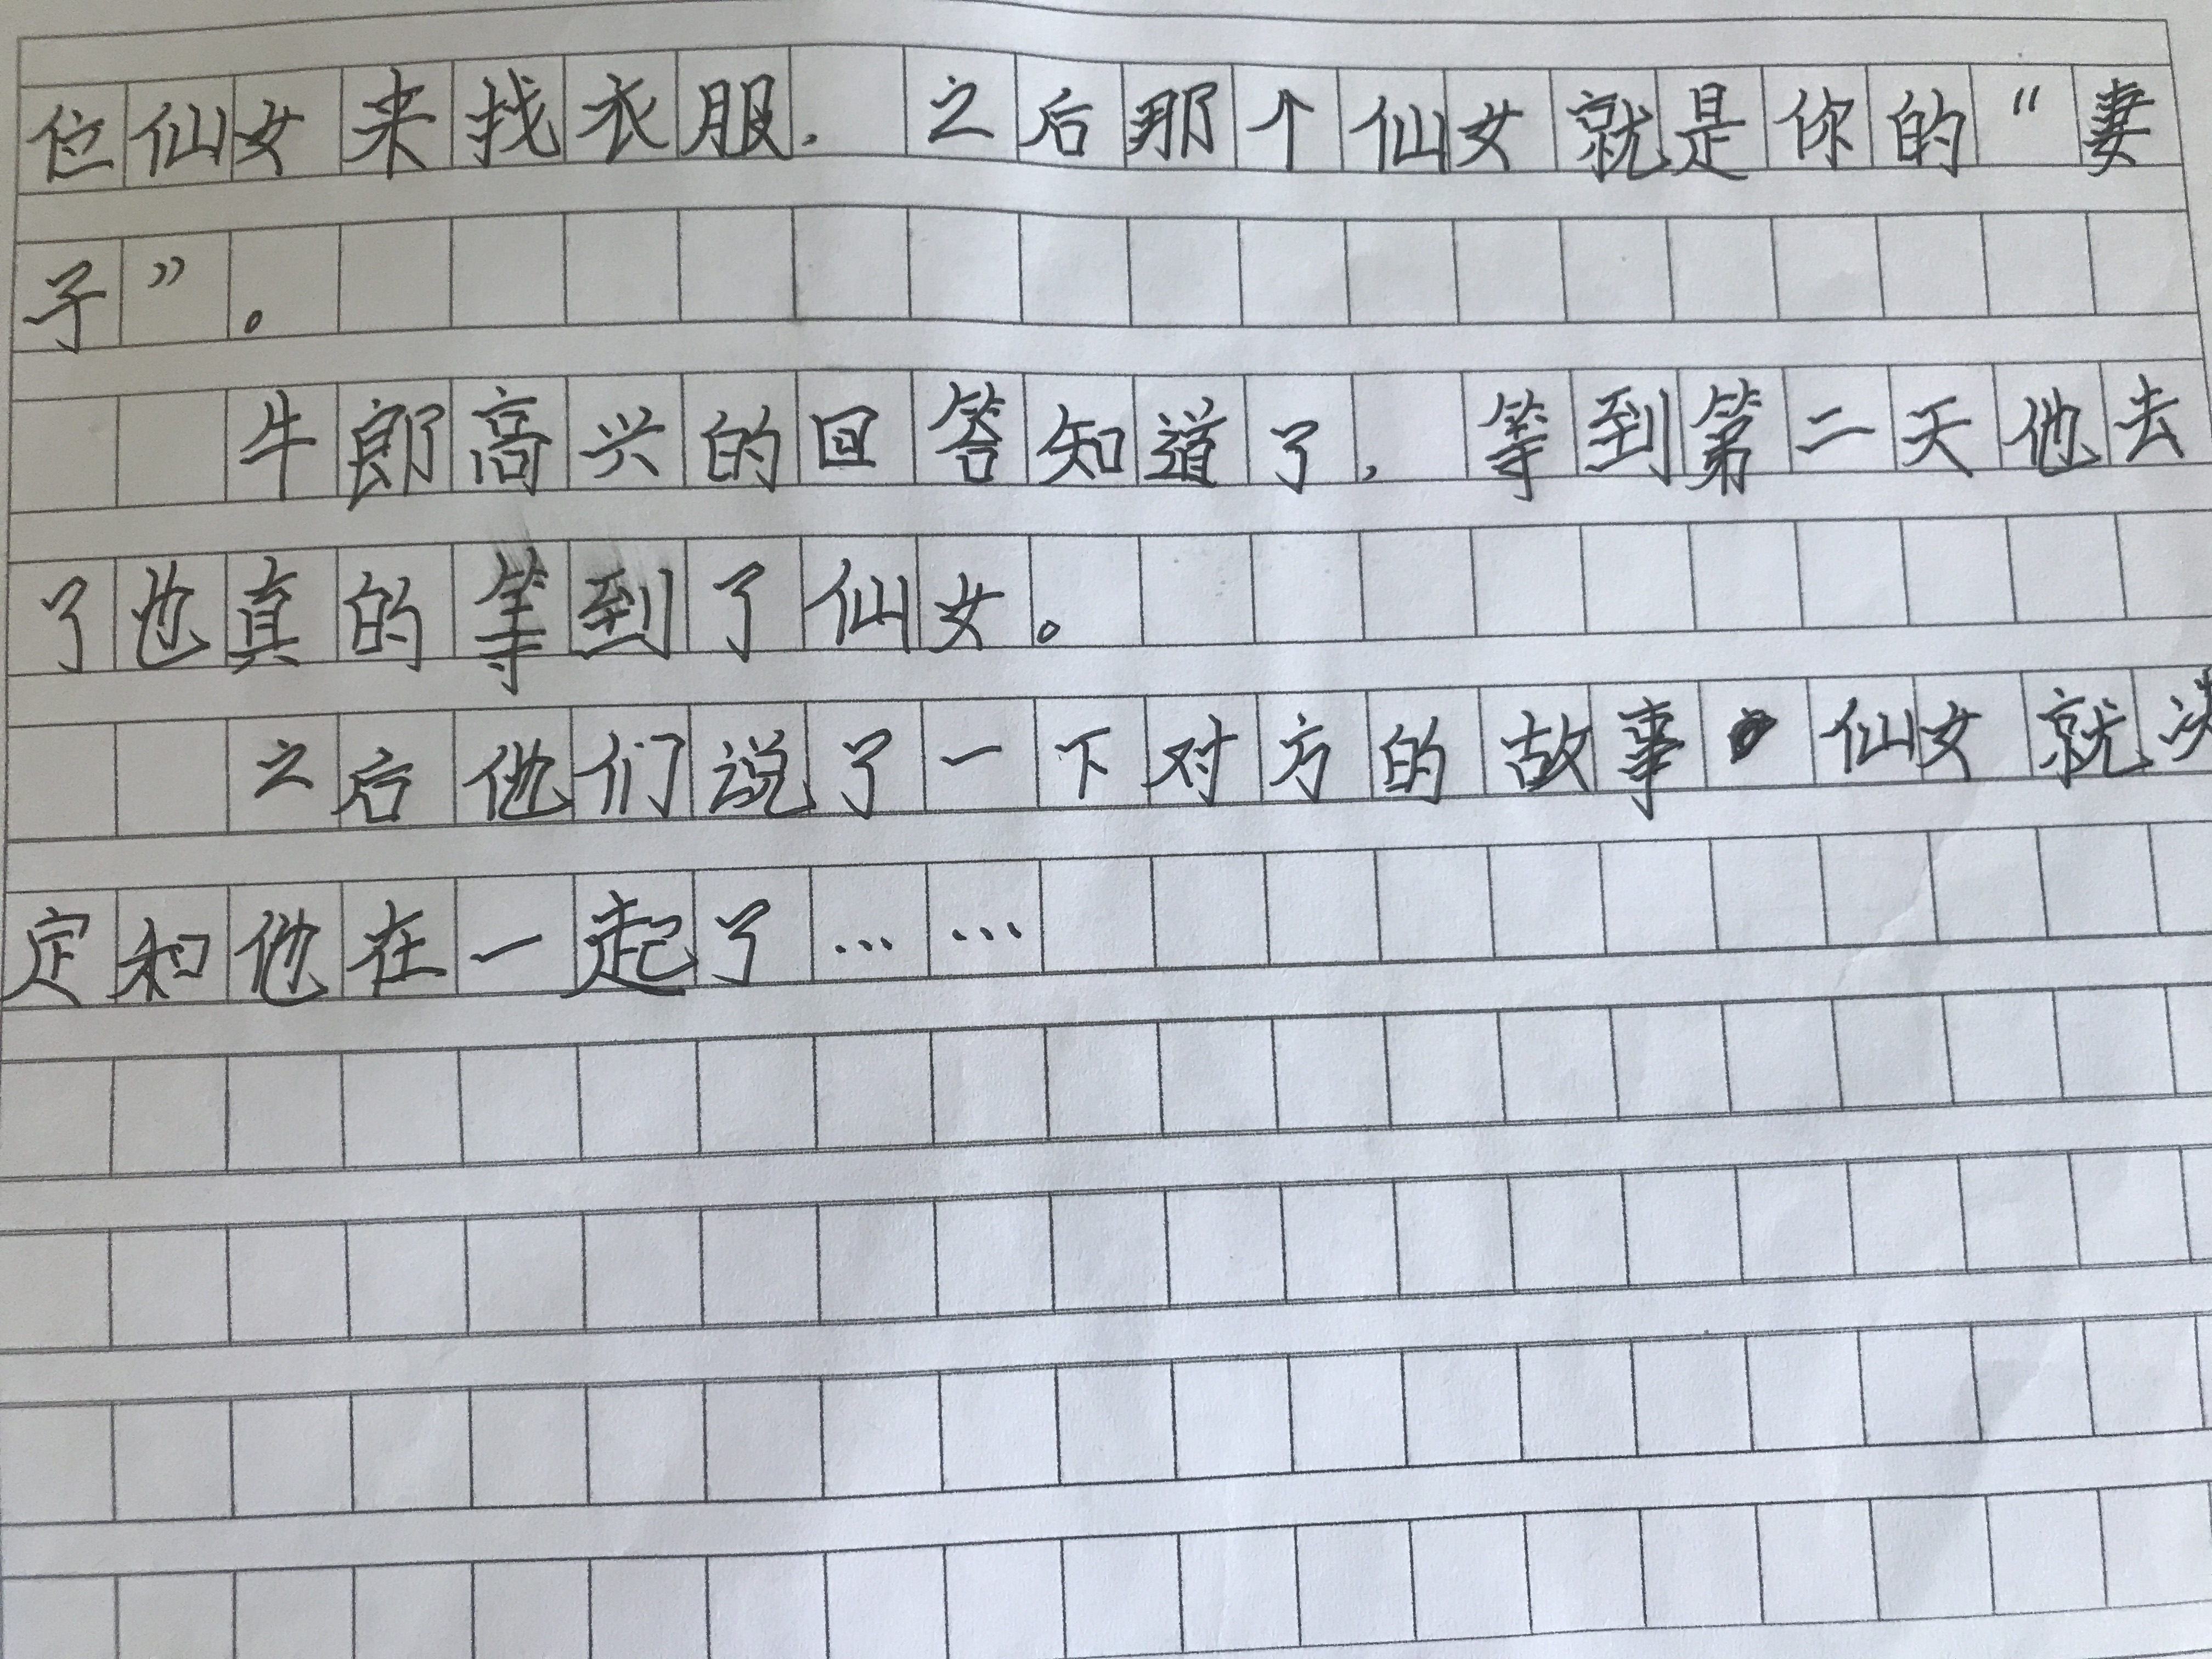 位仙女来找衣服，之后那个仙女就是你的“妻
子”。
牛郎高兴的回答知道了，等到第二天他去
了也真的等到了仙女。
之后他们说了一下对方的故事 仙女就决
定和他在一起了……